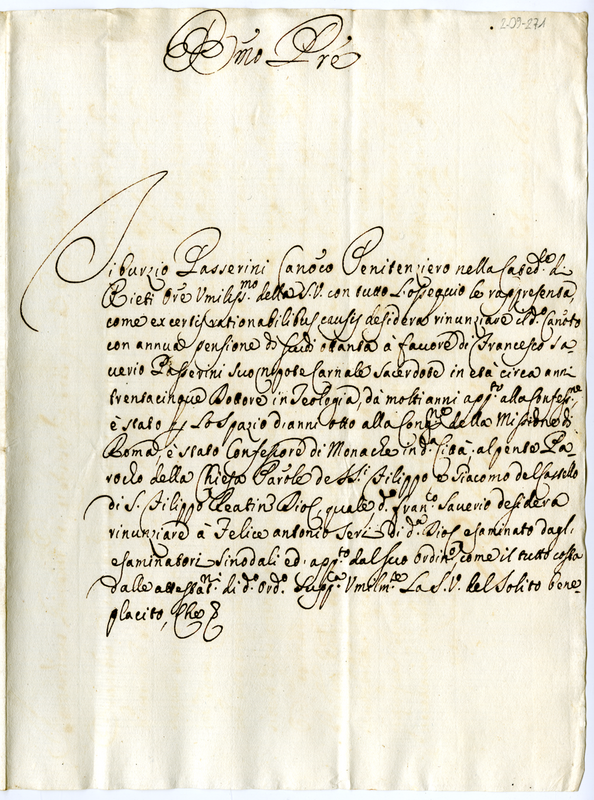 2-09-271
Bmo Pre
Tiburzio Passerini Canoco Penitenziero nella Cated.le di
Rieti Ore Umiliss.mo della S.V. con tutto l'ossequio le rappresenta,
come ex certis rationabilibus causis desidera rinunziare il d.o Can.to
con annua pensione di scudi ottanta à favore di Francesco Sa-
verio Passerini suo nipote Carnale Sacerdote in età circa anni
trentacinque Dottore in Teologia, dà molti anni app.to alla Confess.ne
è stato per lo spazio di anni otto alla Cong.ne della Missione di
Roma, è stato Confessore di Monache in d.a Città, al pnte Pa-
rocho della Chiesa Paro.le de SS.i Filippo e Giacomo del Castello
di S. Filippo Reatin. Dioc, quale d.o Fran.co Saverio desidera
rinunziare à Felice Antonio Seri di d.a Dioc esaminato dagl.
esaminatori sinodali ed app.to dal suo Ordin.o come il tutto costa
dalle attestat.ni di d.o Ord.o Supp.ca Umilm.te La S.V. del Solito bene-
placito, Che